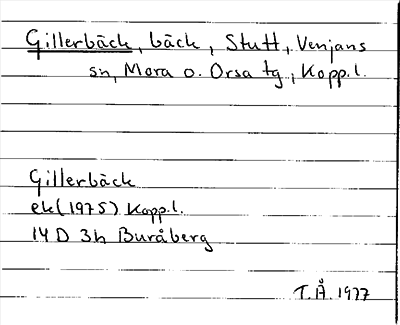 Gillerbäck, bäck, Stutt, Venjans
sn, Mora o. Orsa tg., Kopp.l.
Gillerbäck
ek(1975) Kopp.l.
14 D 3h Buråberg
T.Å. 1977